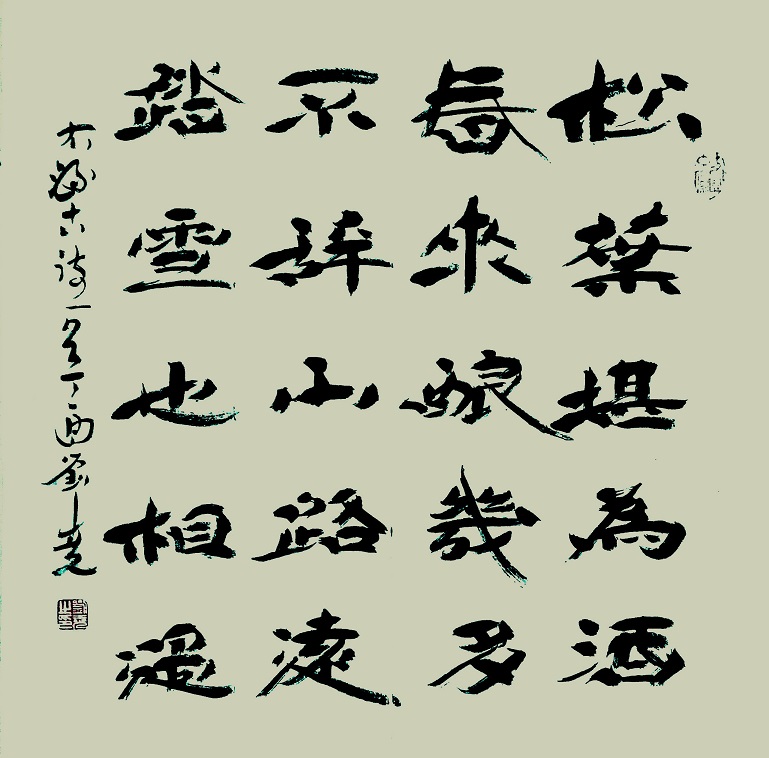 松葉堪為酒
春來釀幾多
不辭山路遠
踏雪也相過
右錄古诗一首丁酉劉